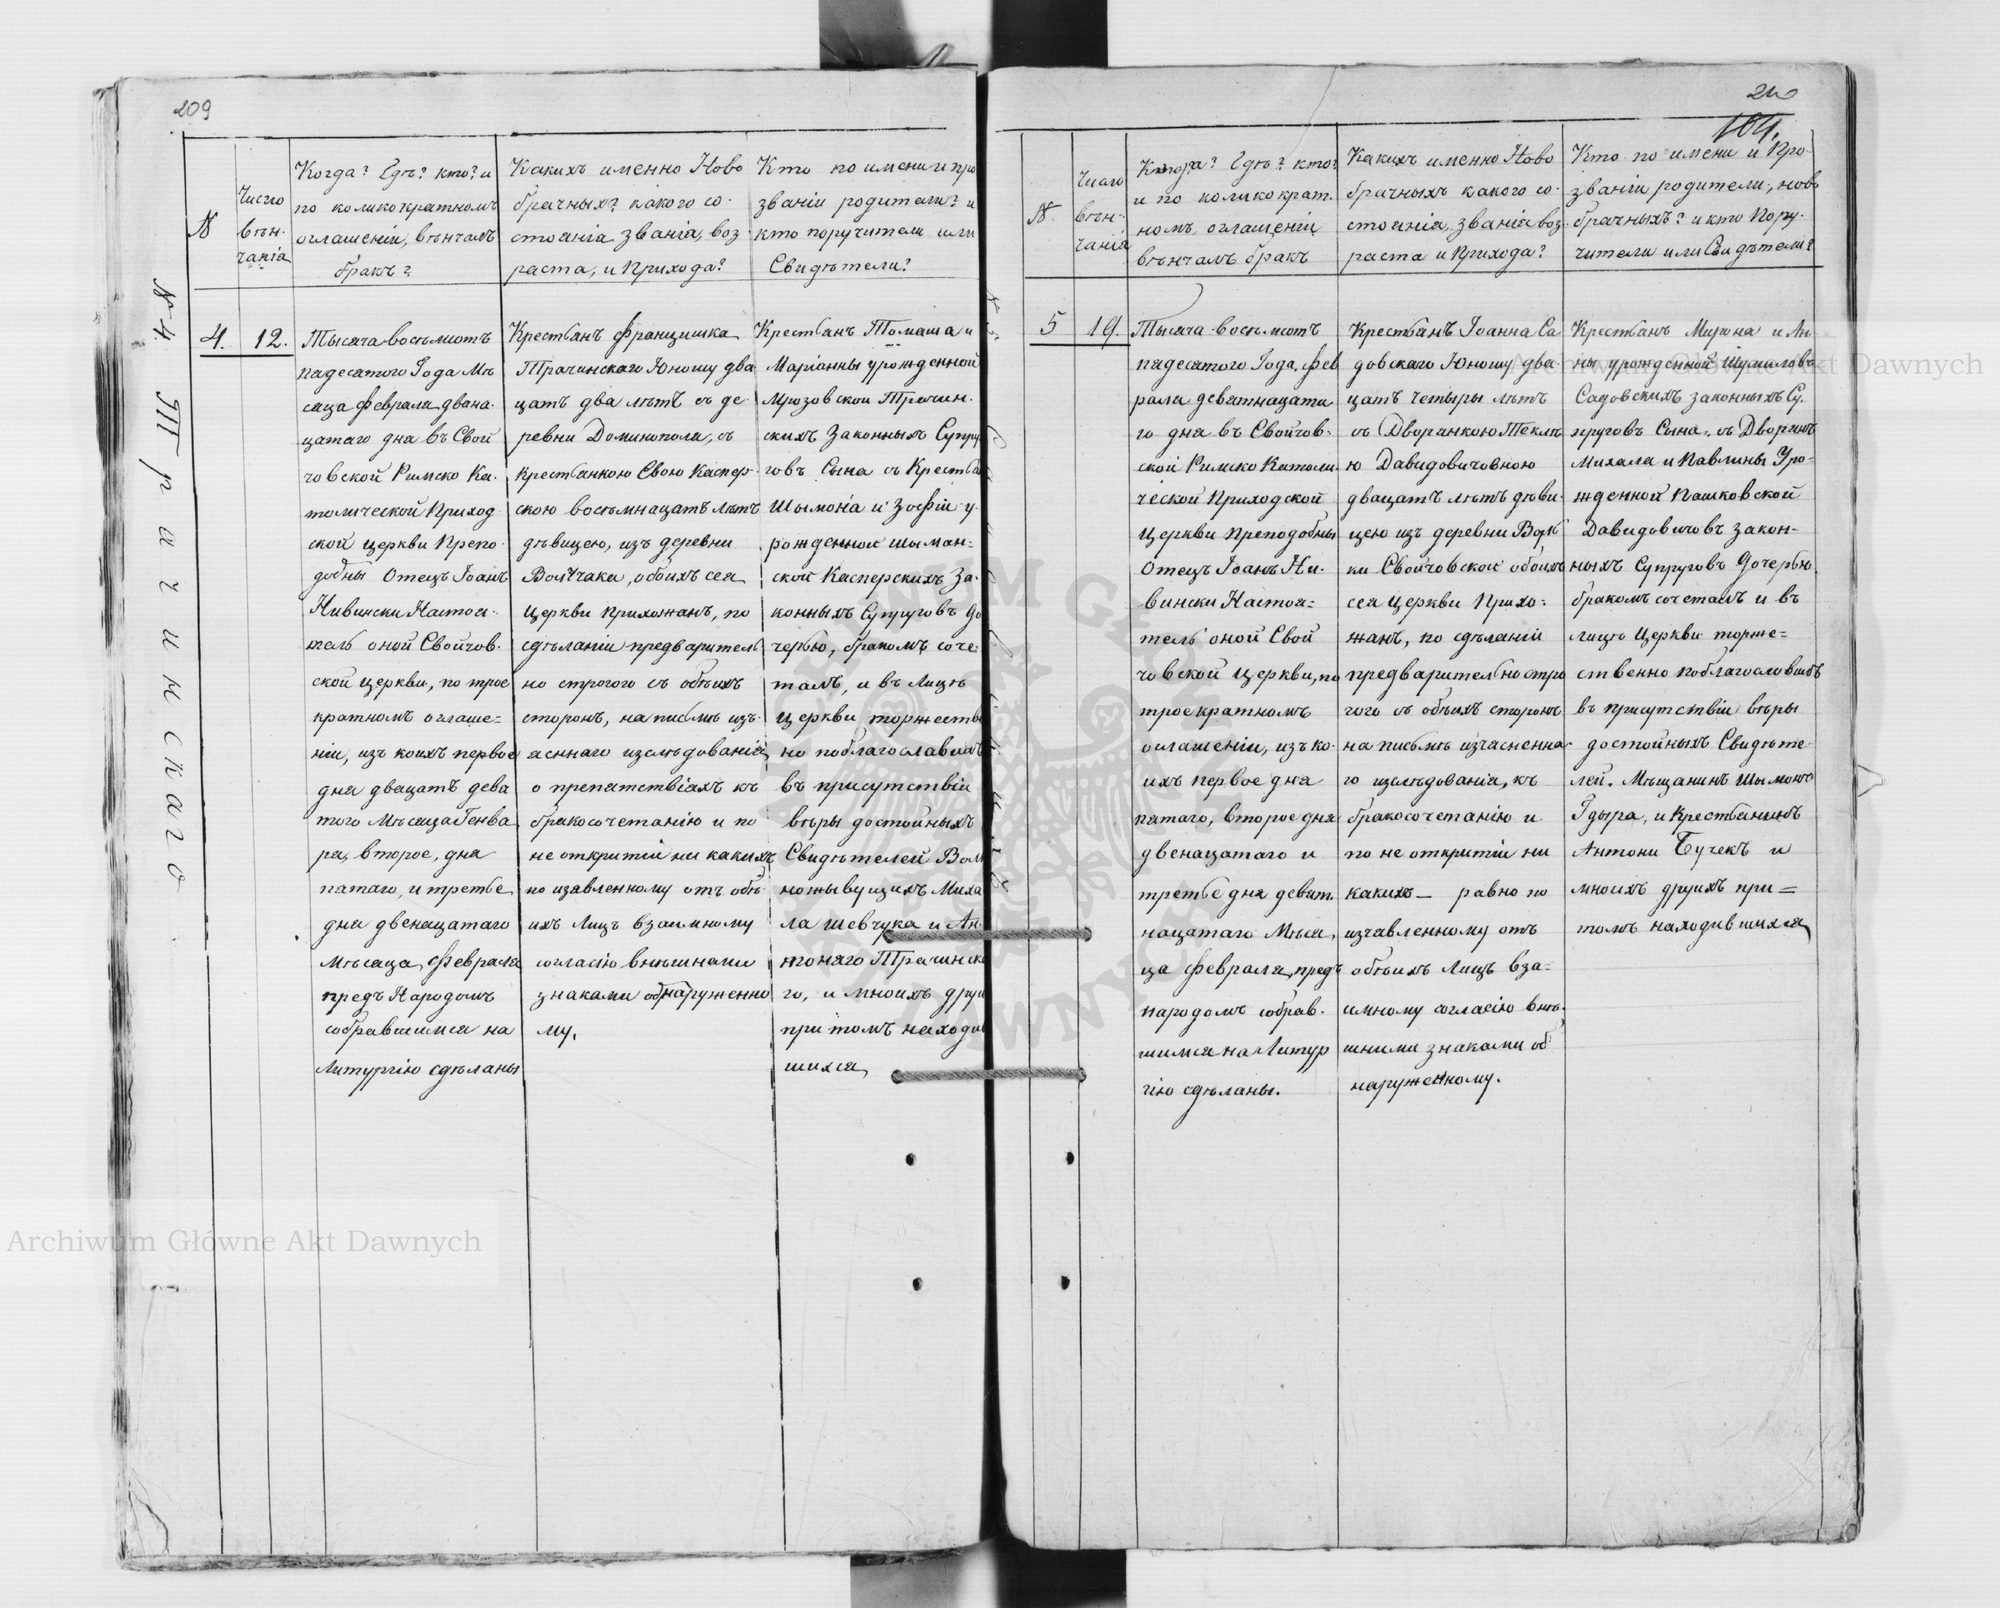 209
N
Число
вѣн-
чанія
Когда? Гдѣ? кто? и
по коликократномъ
оглашеніи, вѣнчалъ
бракъ?
Какихъ именно Ново
брачныхъ? какого со-
стоянія званія, воз
раста, и Прихода?
Кто по имени и про
званіи родители? и
кто поручители или
Свидѣтели?
N 4.
Трачинскаго
4.
12.
Тысяча восѣмсотъ
пядесятого Года Мѣ
сяца Февраля двана-
цатаго дня въ Свой
човской Римско Ка-
толической Приход
ской церкви Препо-
добны Отецъ Іоанъ
Нивински Настоя-
тель оной Свойчов-
ской церкви, по трое
кратномъ оглаше=
ніи, изъ коихъ первое
дня двацать девя
того Мѣсяца Генва
ря, второе, дня
пятаго, и третье
дня двенацатаго
Мѣсяца Февраля
предъ Народомъ
собравшимся на
Литургію сдѣланы
Крестьянъ Францишка
Трачинскаго Юношу два
цать два лѣтъ съ де
ревни Доминополя, съ
крестьянкою Євою Каспер-
скою восѣмнацать лѣтъ
дѣвицею, изъ деревни
Волчака, обоихъ сея
церкви прихожанъ, по
сдѣланіи предваритель
но строгого съ обѣихъ
сторонъ, на письмѣ изъ-
ясннаго изслѣдованія
о препятствіахъ къ
бракосочетанію и по
не открытіи ни какихъ
по изявленному отъ обѣ
ихъ Лицъ взаимному
согласію внѣшнами
знаками обнаруженно
му.
Крестьянъ Томаша и
Маріанны урожденной
Мрозовской Трачин-
скихъ Законныхъ Супру
говъ Сына съ Крестья
Шымона и Зофіи у-
рожденной Шыман-
ской Касперскихъ За-
конныхъ Супруговъ До
черью, бракомъ соче-
талъ, и въ Лицѣ
Церкви торжестве
но поблагославилъ
въ присутствіи
вѣры достойныхъ
Свидѣтелей Вол
ножывущихъ Миха
ла Шевчука и Ан
тонаго Трачинска
го, и многихъ други
при томъ находи
шихся
N.
Число
вѣн-
чанія
Когда? Гдѣ? кто?
и по коликократ-
номъ оглашеніи
вѣнчалъ бракъ
Какихъ именно Ново
брачныхъ какого со-
стоянія, званія воз-
раста и Прихода?
Кто по имени и Про-
званіи родители, ново
брачныхъ? и кто Пору-
чители или Свидѣтели?
104.
5
19.
Тысяча восѣмсотъ
пядесятого Года, Фев
раля девятнацата
го дня въ Свойчов-
ской Римско Католи-
ческой Приходской
Церкви Преподобны
Отецъ Іоанъ Ни-
вински Настоя=
тель оной Свой
човской Церкви, по
троекратномъ
оглашеніи, изъ ко-
ихъ первое дня
пятаго, второе дня
двенацатаго и
третье дня девят-
нацатаго Мѣся,
ца Февраля, предъ
народомъ собрав-
шимся на Литур
гію сдѣланы.
Крестьянъ Іоанна Са
довскаго Юношу два
цать четыры лѣтъ
съ Дворанкою Теклѣ
ю Давидовичовною
двацать лѣтъ дѣви-
цею изъ деревни Вол
ки Свойчовской обоихъ
сея церкви Прихо-
жанъ, по сдѣланіи
предварительно стро
гого съ обѣихъ сторонъ
на письмѣ изчасненна-
го изслѣдованія, къ
бракосочетанію и
по не открытіи ни
какихъ — равно по
изчавленному отъ
обѣихъ Лицъ вза=
имному согласію внѣ-
шними знаками об-
наруженному.
Крестьянъ Мирона и Ан
ны урожденной Шумиловъ
Садовскихъ законныхъ Су-
пруговъ Сына, съ Дворянъ
Михала и Павлины Уро-
жденной Пашковской
Давидовичовъ закон-
ныхъ Супруговъ Дочерью
бракомъ сочеталъ и въ
лицѣ Церкви торже=
ственно поблагословивъ
въ присутствіи вѣры
достойныхъ Свидѣте
лей. Мѣщанинъ Шымонъ
Гдыра, и Крестьянинъ
Антони Бучекъ и
многихъ другихъ при=
томъ находившихся
Archiwum Główne Akt Dawnych
Archiwum Główne Akt Dawnych